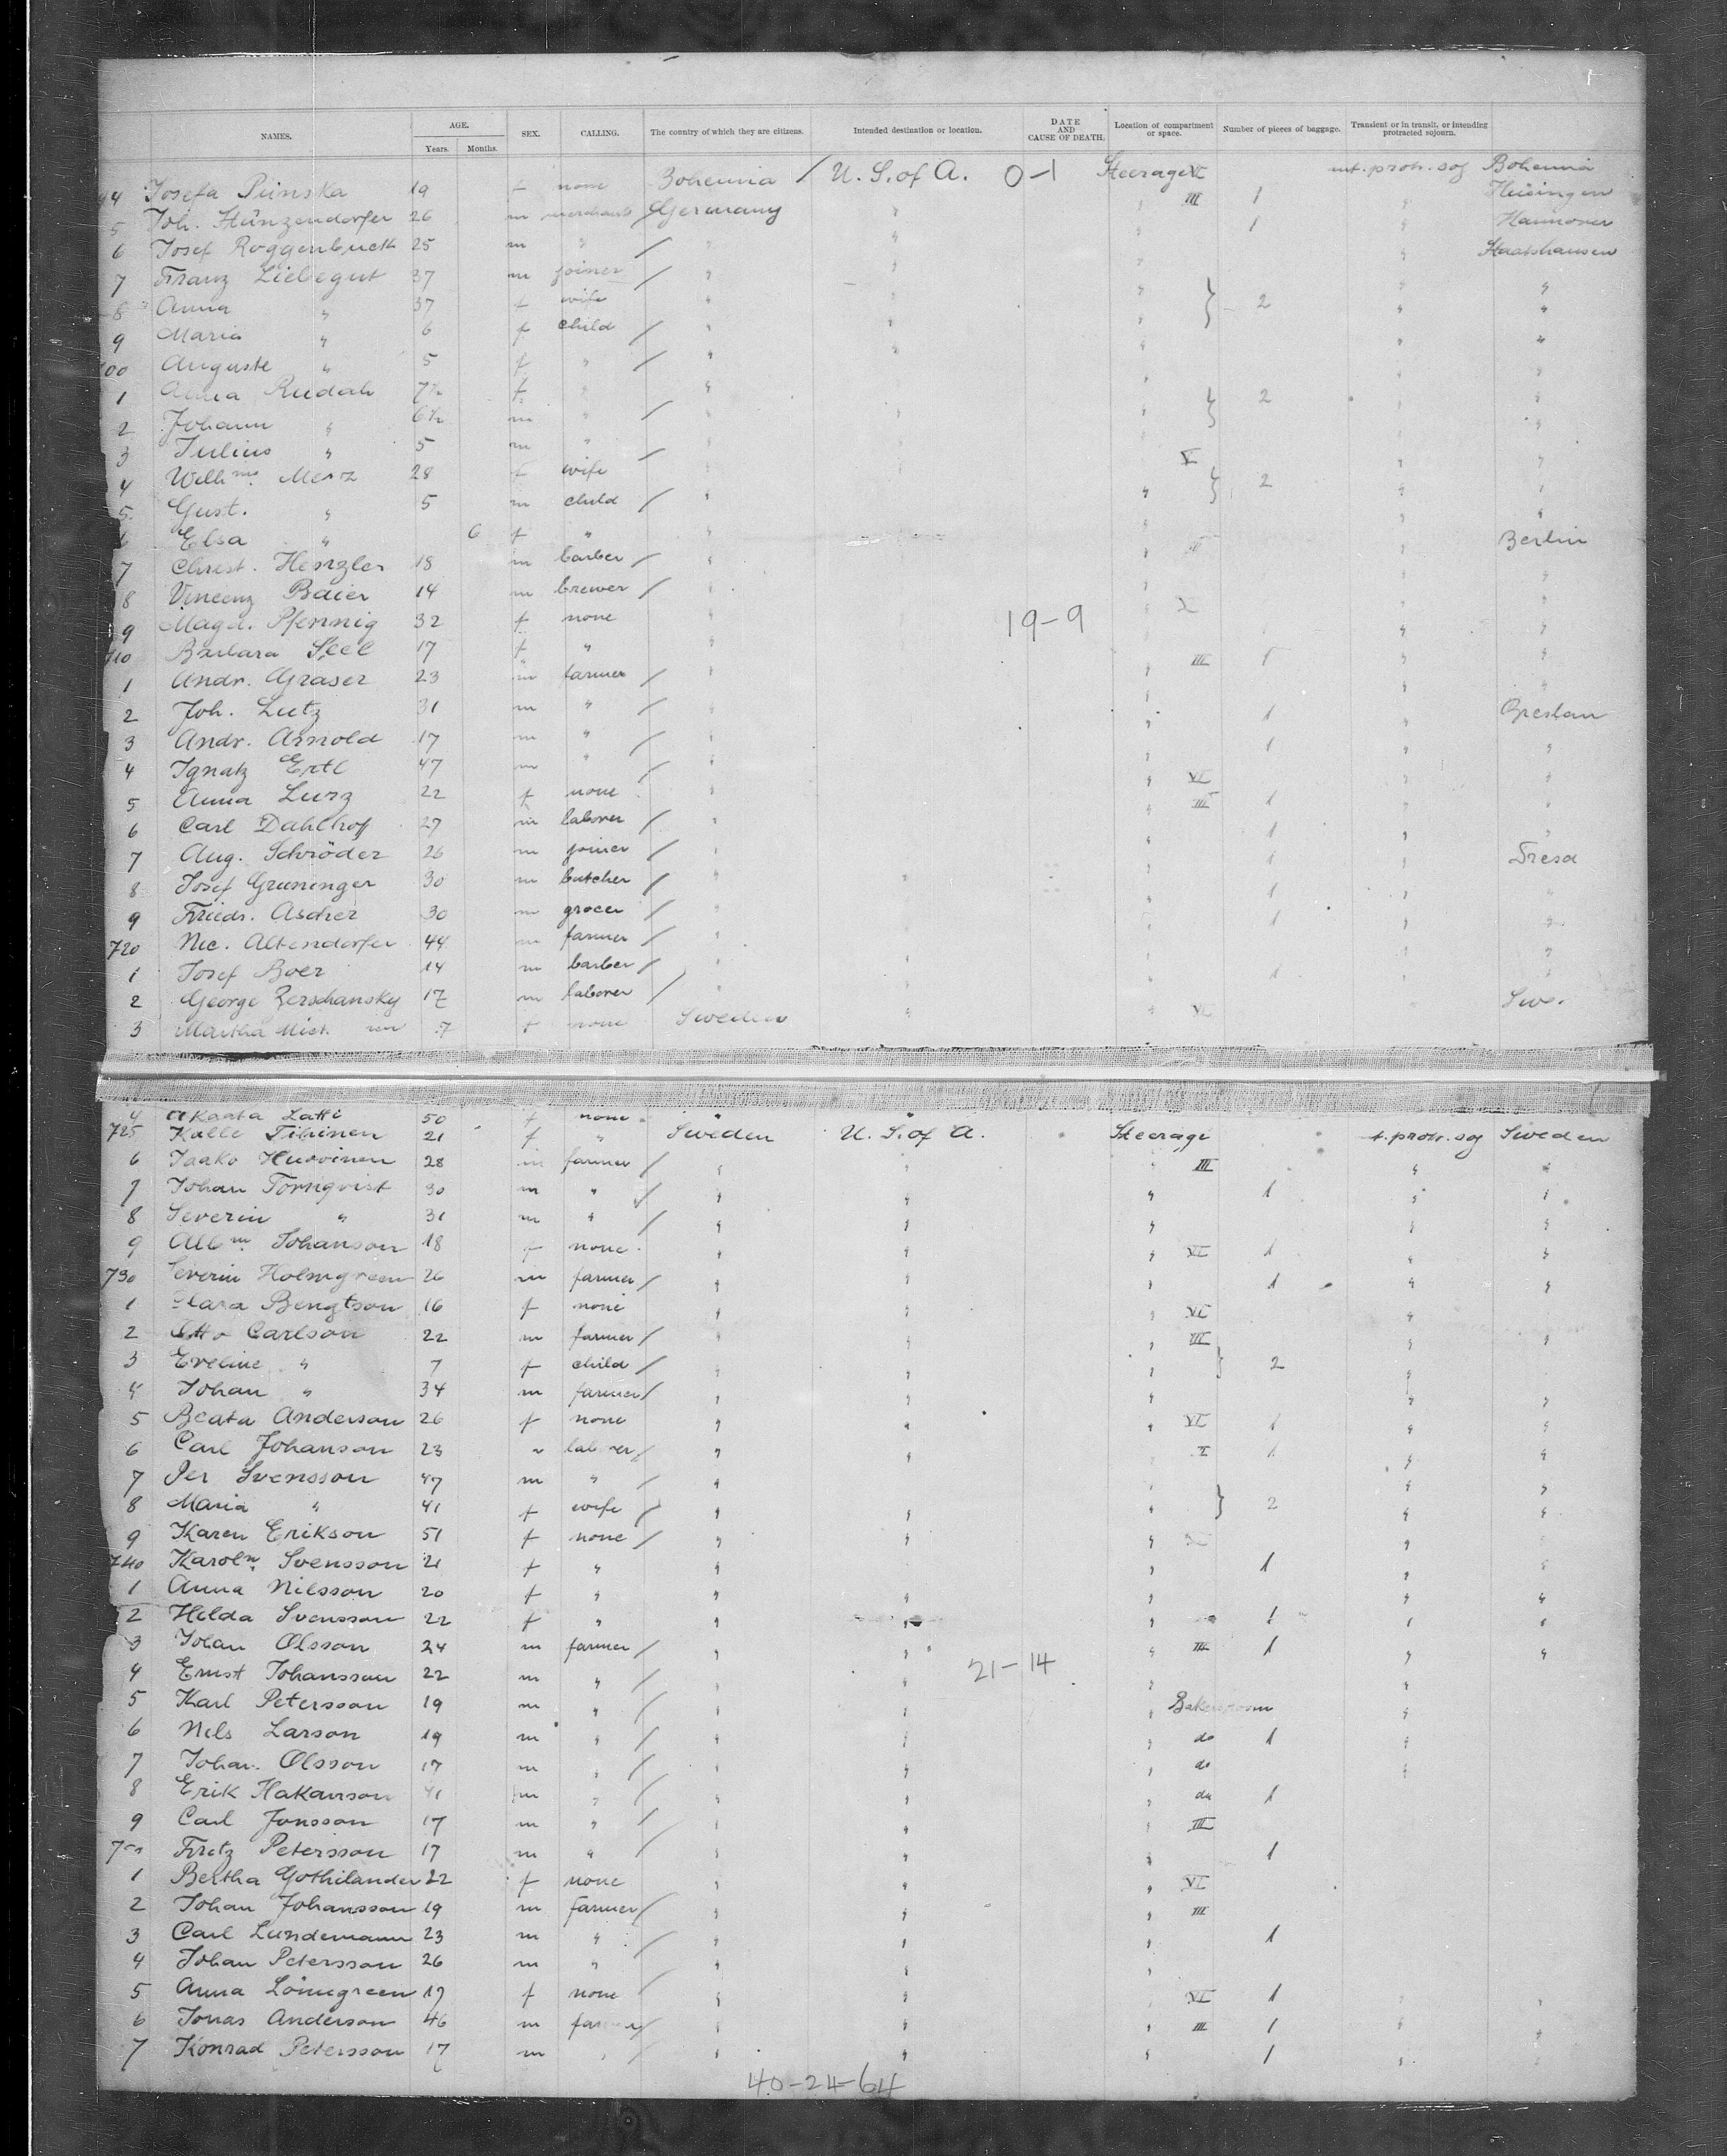 NAMES. AGE. Years. Months. SEX. CALLING. The country of which they are citizens. Intended destination or location. DATE AND CAUSE OF DEATH. Location of compartment or space. Number of pieces of baggage. Transient or in transit, or intending protracted sojourn.
44 Josefa Púnska 19 f none Bohemia / U. S. of A. 0-1 Steerage VI int. protr. soj Bohemia
5 Joh. Hünzendorfer 26 m merchant / Germany " " III 1 " Heisingen
6 Josef Roggenbuck 25 m " / " " " 1 " Hannover
7 Franz Liebegut 37 m joiner / " " " " Staatshausen
8 Anna " 37 f wife " " " } 2 " "
9 Maria " 6 f child / " " " " "
700 Auguste " 5 f " / " " " " "
1 Anna Rudah 7½ f " " " " "
2 Johann " 6½ m " / " " " } 2 " "
3 Julius " 5 m " / " " " " "
4 Wilhme. Merz 28 f wife " " V " "
5 Gust. " 5 m child / " " } 2 " "
6 Elsa " 6 f " " " " "
7 Christ. Henzler 18 m barber / " " " Berlin
8 Vincenz Baier 14 m brewer / " " " "
9 Magd. Pfennig 32 f none " 19-9 " V " "
710 Barbara Seel 17 f " " " "
1 Andr. Graser 23 m farmer / " " III 1 " "
2 Joh. Lutz 31 m " / " " " "
3 Andr. Arnold 17 m " / " " 1 " Breslau
4 Ignatz Ertl 47 m " / " " 1 " "
5 Anna Lurz 22 f none " " VI " "
6 Carl Dahlhoff 27 m laborer / " " III 1 " "
7 Aug. Schröder 26 m joiner / " " 1 " "
8 Josef Gruninger 30 m butcher / " " " 1 " Dresd
9 Friedr. Ascher 30 m grocer / " " 1 " "
720 Nic. Altendorfer 44 m farmer / " " " 1 " "
1 Josef Boer 14 m barber / " " " "
2 George Zerschansky 17 m laborer / " " " 1 " "
3 Martha 7 f none Sweden " " VI Swe.
4 50 f none "
725 Kalle Tihinen 21 f " Sweden U. S. of A. Steerage t. protr. soj Sweden
6 Jaako Huovinen 28 m farmer / " " " III " "
7 Johan Tornqvist 30 m " / " " " 1 " "
8 Severin " 31 m " / " " " " "
9 Albm. Johanson 18 f none " " " VI 1 " "
730 Severin Holmgreen 26 m farmer / " " " 1 " "
1 Clara Bengtson 16 f none " " " VI "
2 Otto Carlson 22 m farmer / " " " III " "
3 Eveline " 7 f child / " " " } 2 "
4 Johan " 34 m farmer / " " " " "
5 Beata Anderson 26 f none " " " VI 1 " "
6 Carl Johanson 23 " laborer / " " " V 1 " "
7 Per Svensson 47 m " / " " " "
8 Maria " 41 f wife / " " " } 2 " "
9 Karen Erikson 51 f none / " " " V "
740 Karoln. Svensson 21 f " " " 1 " "
1 Anna Nilsson 20 f " " " " " "
2 Hilda Svensson 22 f " " " " 1 " "
3 Johan Olsson 24 m farmer / " " " III 1 " "
4 Ernst Johansson 22 m " / " " 21-14 " "
5 Karl Petersson 19 m " / " " " Bakersroom "
6 Nils Larson 19 m " / " " " do 1 "
7 Johan. Olsson 17 m " / " " " do "
8 Erik Hakanson 41 m " / " " " do 1
9 Carl Jonsson 17 m " / " " " III
750 Fritz Petersson 17 m " / " " " 1
1 Bertha Gothilander 22 f none " " " VI
2 Johan Johansson 19 m farmer / " " " III
3 Carl Lundemann 23 m " / " " " 1
4 Johan Petersson 26 m " / " " "
5 Anna Lönngreen 19 f none / " " VI 1 " "
6 Jonas Anderson 46 m farmer / " " " III 1 " "
7 Konrad Petersson 17 m " / " " " 1 " "
40-24-64